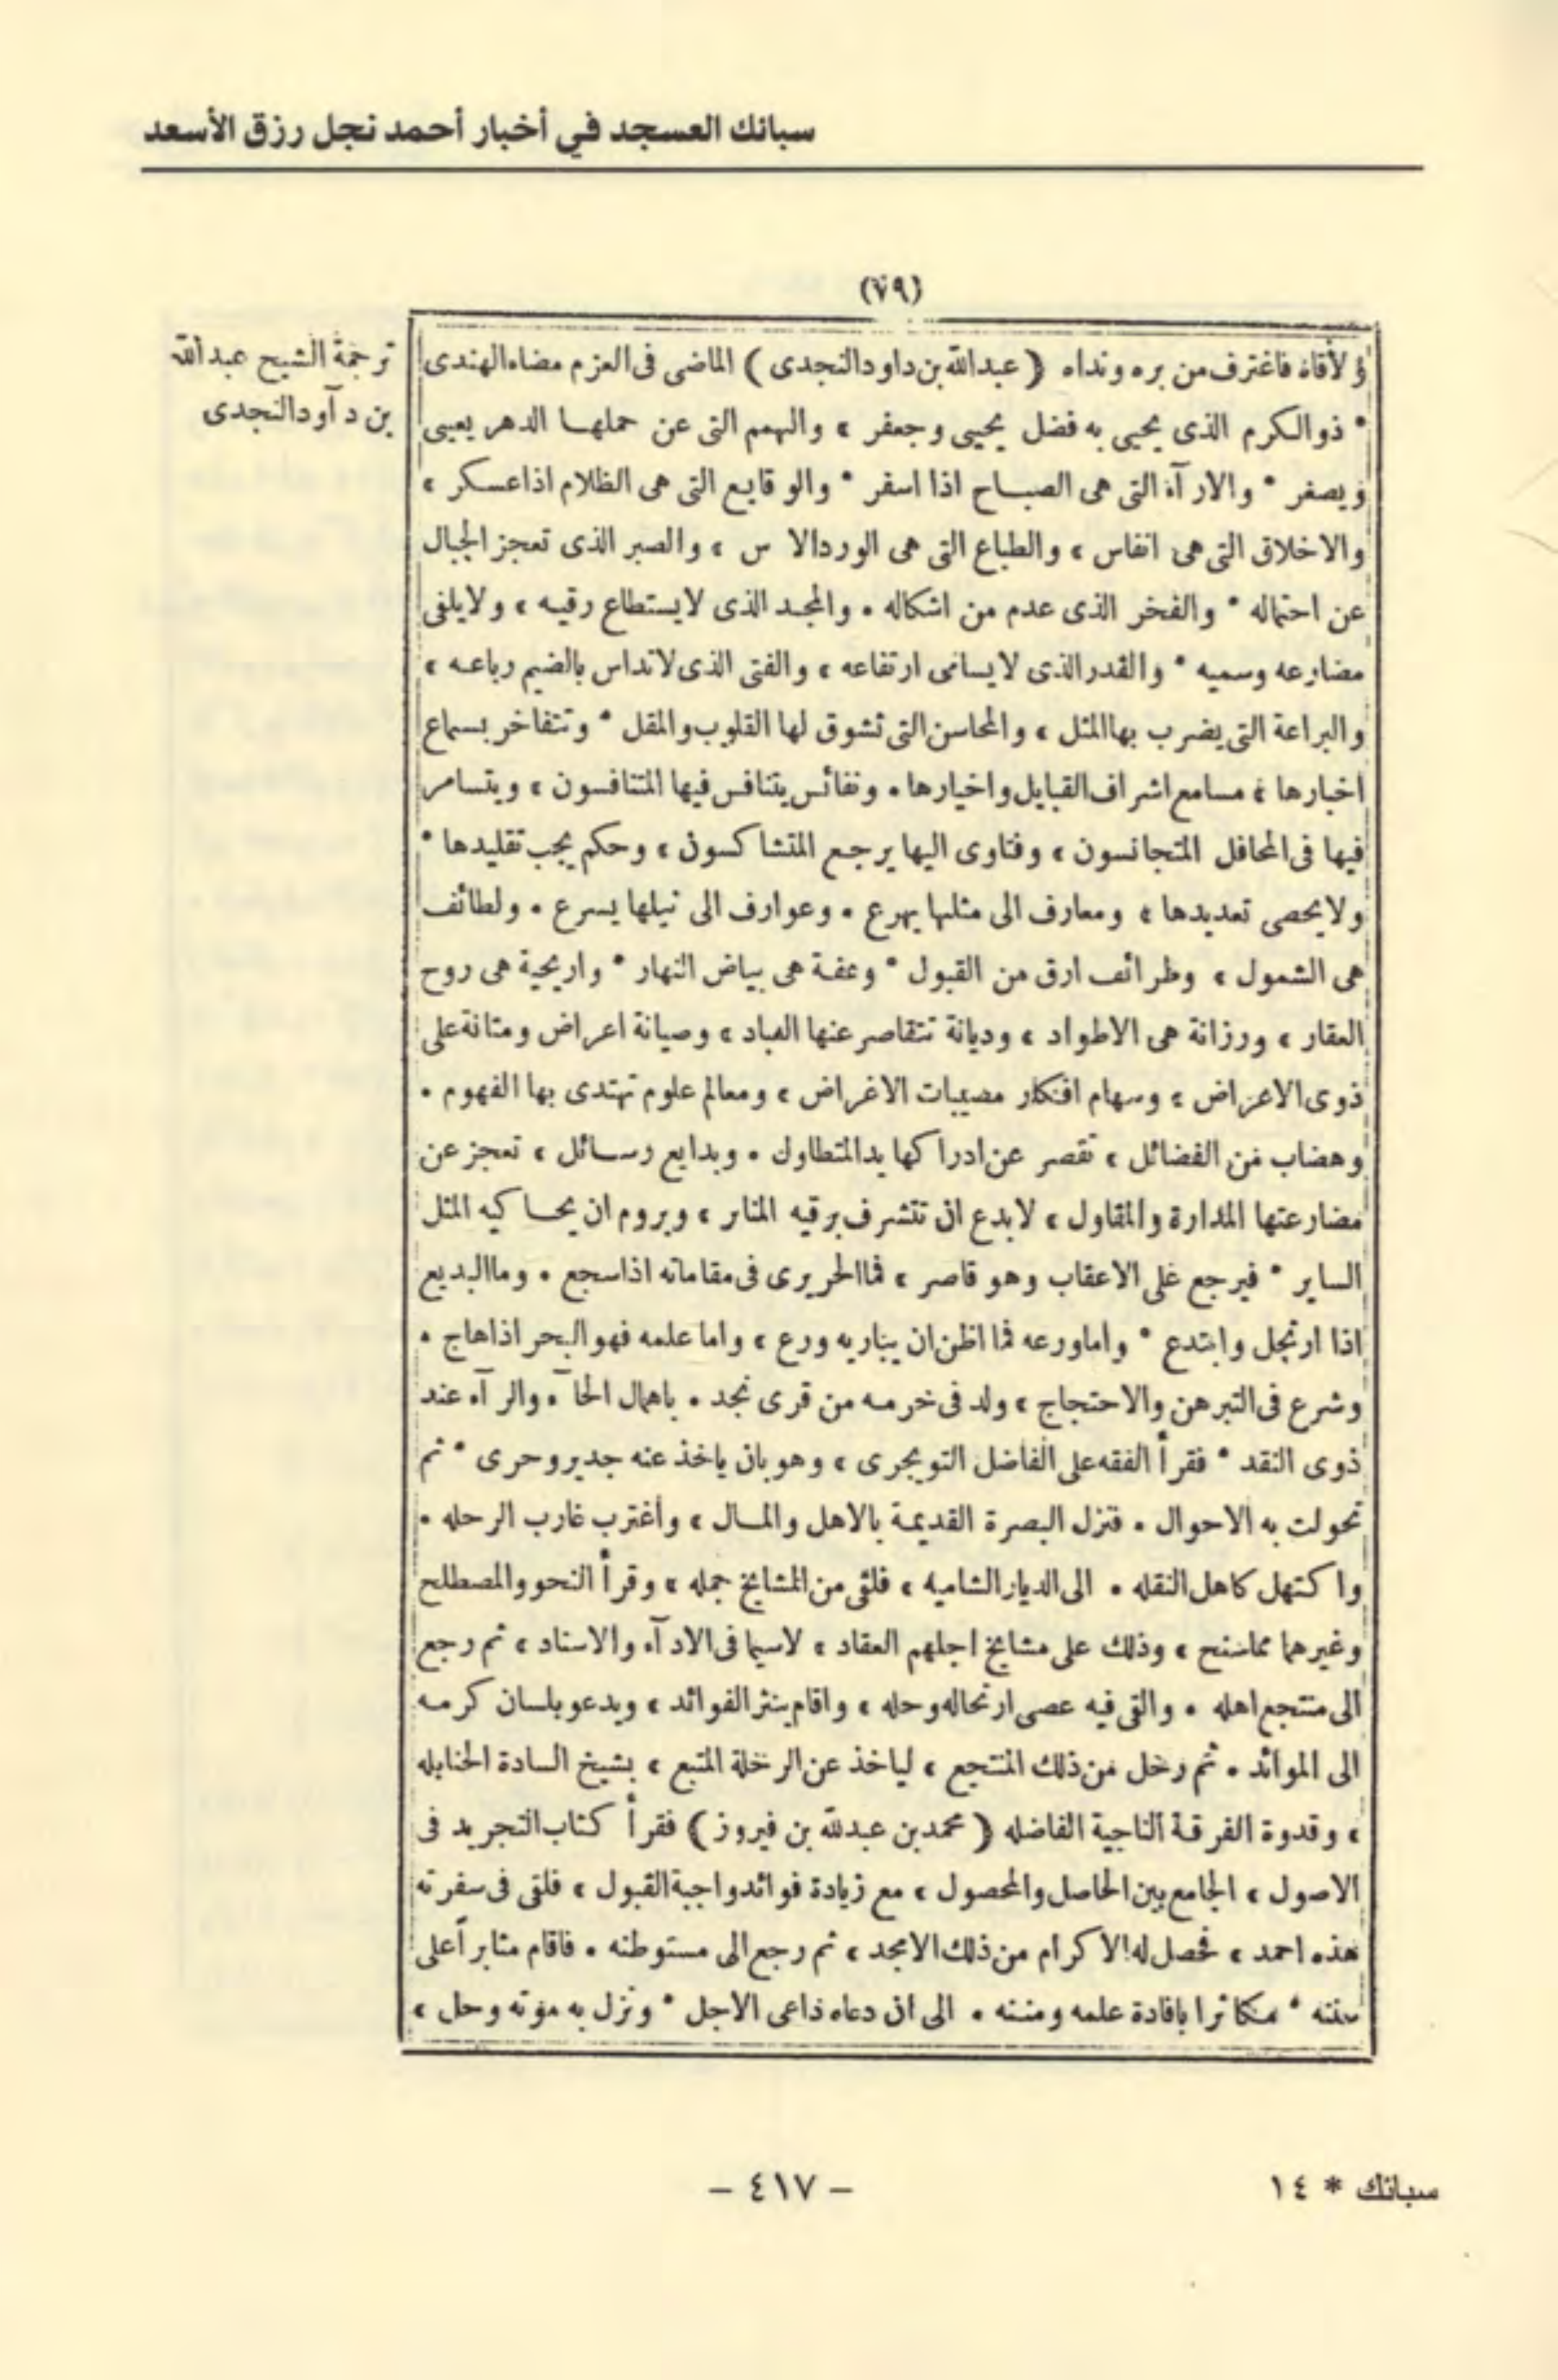 سبائك العسجد في أخبار أحمد نجل رزق الأسعد
(٧٩)
ترجمة الشيخ عبدالله
بن دآودالنجدى
ولأقاه فاغترف من بره ونداه ( عبدالله بن داود النجدى ) الماضى فى العزم مضاء الهندى
* ذو الكرم الذى يحيى به فضل يحيى وجعفر ، والهمم التى عن حملها الدهر يعيى
ويصغر * والارآء التى هى الصباح اذا اسفر * والوقايع التى هى الظلام اذا عسكر ،
والاخلاق التى هى انفاس ، والطباع التى هى الورد الا س ، والصبر الذى تعجز الجبال
عن احتماله * والفخر الذى عدم من اشكاله . والمجد الذى لا يستطاع رقيه ، ولا يلفى
مضارعه وسميه * والقدر الذى لا يسامى ارتفاعه ، والفتى الذى لا تداس بالضيم رباعه ،
والبراعة التى يضرب بها المثل ، والمحاسن التى تشوق لها القلوب والمقل * وتتفاخر بسماع
اخبارها ، مسامع اشراف القبايل واخيارها . ونفائس يتنافس فيها المتنافسون ، ويتسامر
فيها فى المحافل المتجانسون ، وفتاوى اليها يرجع المتشاكسون ، وحكم يجب تقليدها *
ولا يحصى تعديدها ، ومعارف الى مثلها يهرع . وعوارف الى نيلها يسرع . ولطائف
هى الشمول ، وطرائف ارق من القبول * وعفة هى بياض النهار * واريحية هى روح
العقار ، ورزانة هى الاطواد ، وديانة تتقاصر عنها العباد ، وصيانة اعراض ومتانة على
ذوى الاعراض ، وسهام افكار مصيبات الاغراض ، ومعالم علوم تهتدى بها الفهوم .
وهضاب من الفضائل ، تقصر عن ادراكها يد المتطاول . وبدايع رسائل ، تعجز عن
مضارعتها المدارة والمقاول ، لا بدع ان تتشرف برقيه المنابر ، ويروم ان يحاكيه المثل
الساير * فيرجع على الاعقاب وهو قاصر ، فما الحريرى فى مقاماته اذا سجع . وما البديع
اذا ارتجل وابتدع * واما ورعه فما اظن ان يباريه ورع ، واما علمه فهو البحر اذا هاج .
وشرع فى التبرهن والاحتجاج ، ولد فى خرمه من قرى نجد . باهمال الحآء والرآء عند
ذوى النقد * فقرأ الفقه على الفاضل التويجرى ، وهو بان ياخذ عنه جدير وحرى * ثم
تحولت به الاحوال . فنزل البصرة القديمة بالاهل والمال ، وأغترب غارب الرحله .
واكتهل كاهل النقله . الى الديار الشاميه ، فلقى من المشايخ جمله ، وقرأ النحو والمصطلح
وغيرهما مما سنح ، وذلك على مشايخ اجلهم العقاد ، لاسيما فى الادآء والاسناد ، ثم رجع
الى منتجع اهله . والقى فيه عصى ارتحاله وحله ، واقام ينثر الفوائد ، ويدعو بلسان كرمه
الى الموائد . ثم رحل من ذلك المنتجع ، لياخذ عن الرحلة المتبع ، بشيخ السادة الحنابله
، وقدوة الفرقة الناجية الفاضله ( محمد بن عبدلله بن فيروز ) فقرأ كتاب التجريد فى
الاصول ، الجامع بين الحاصل والمحصول ، مع زيادة فوائد واجبة القبول ، فلقى فى سفرته
هذه احمد ، فحصل له الاكرام من ذلك الامجد ، ثم رجع الى مستوطنه . فاقام مثابرأ على
سننه * مكاثرا بافادة علمه ومننه . الى ان دعاه داعى الاجل * ونزل به موته وحل ،
سبائك * ١٤
– ٤١٧ –